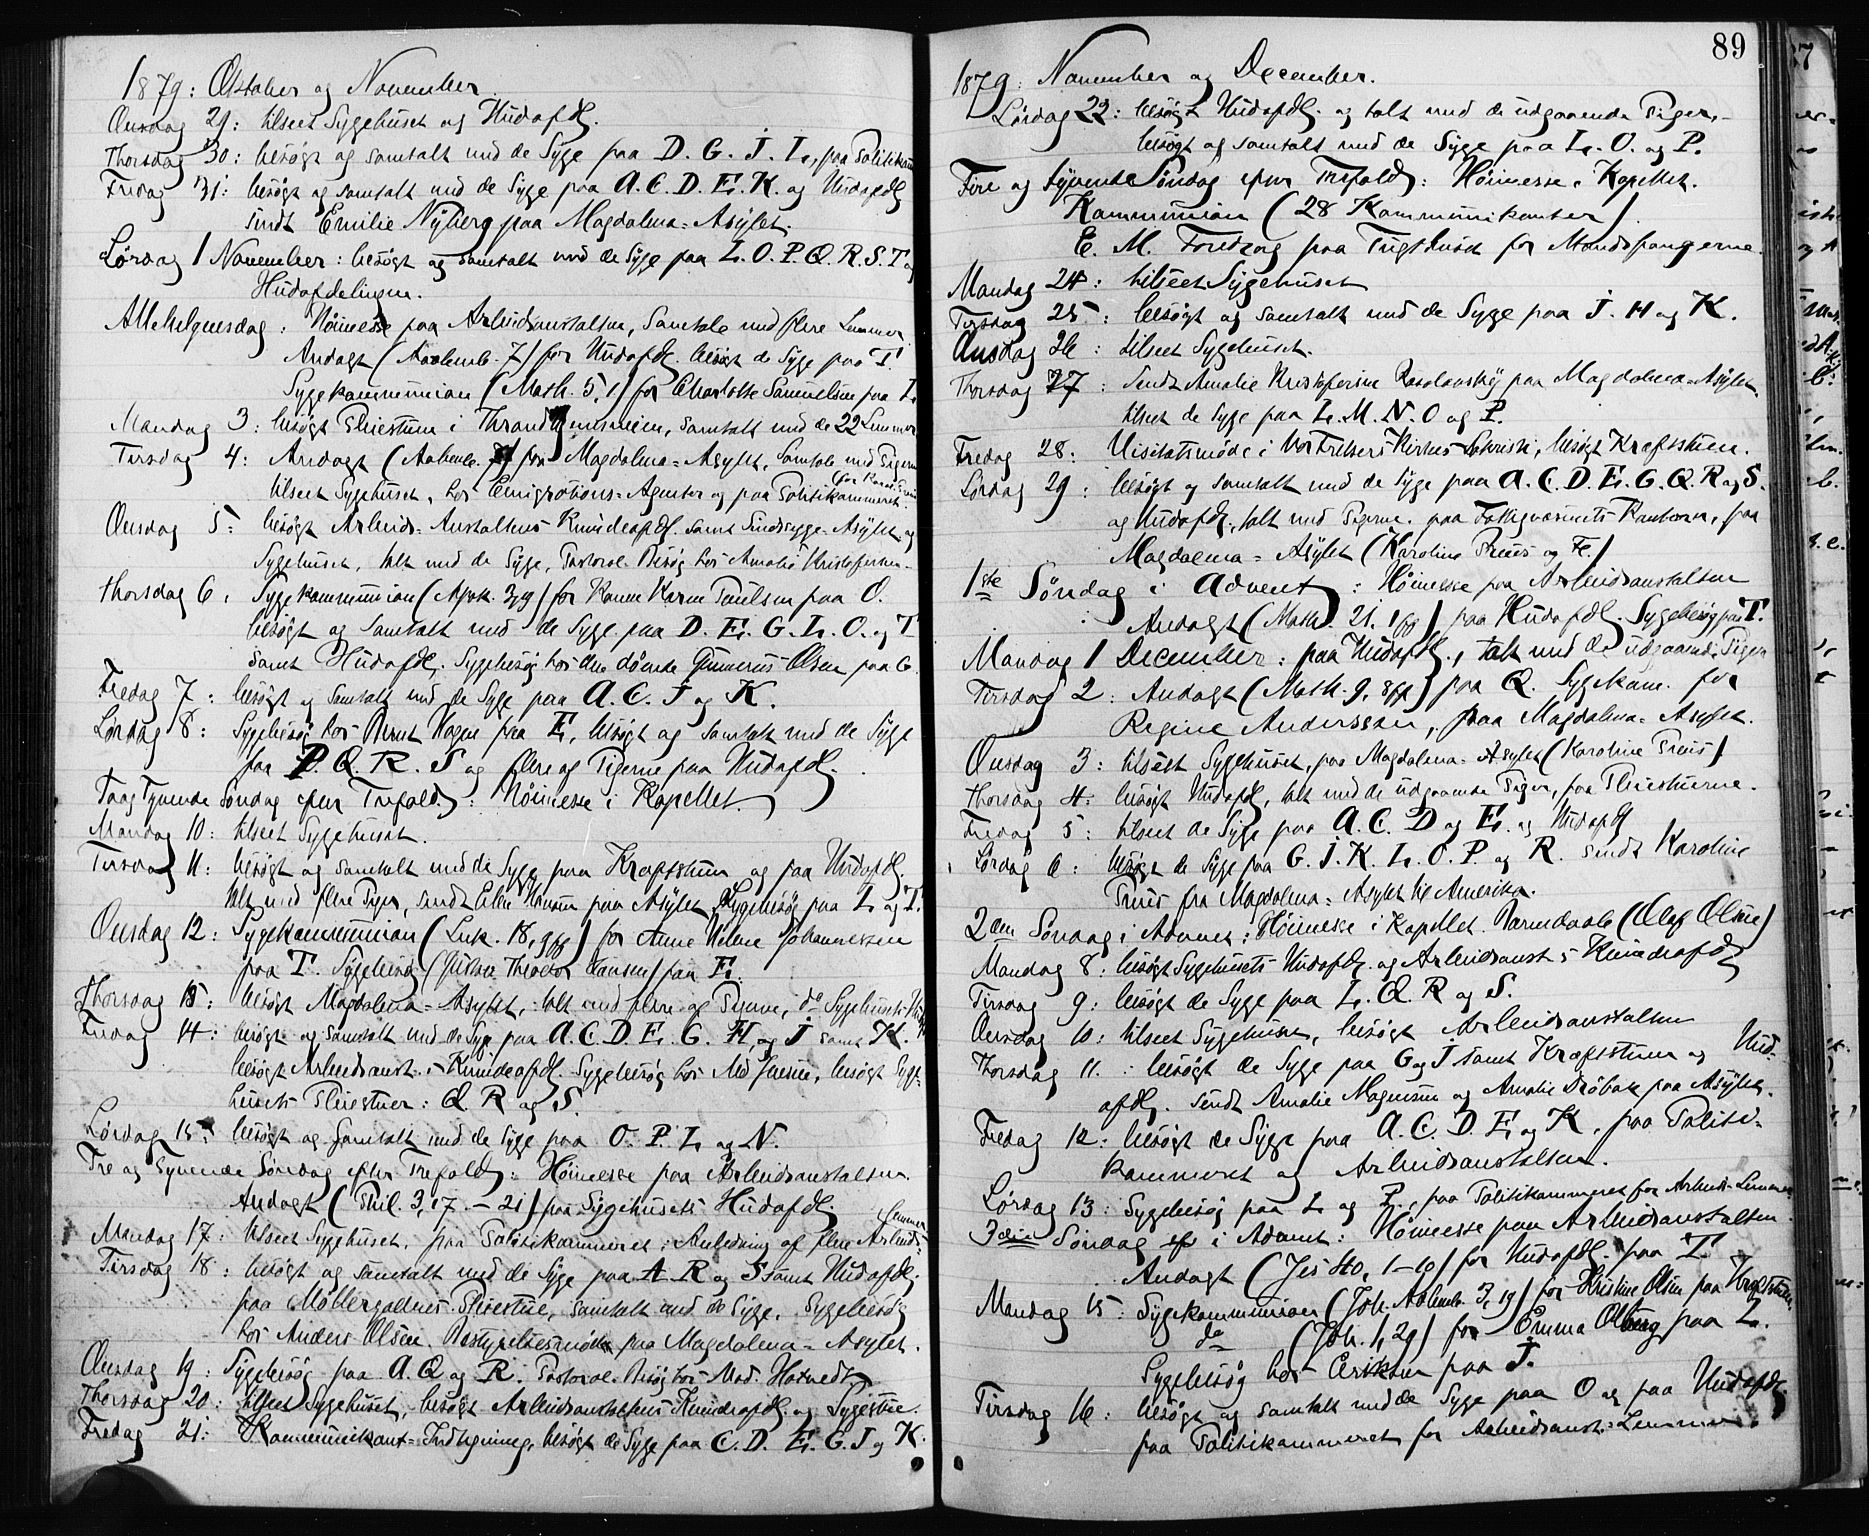 1879: Oktober og November.
Onsdag 29: tilseet Sygehuset og Hudafdl.
Thorsdag 30: besøgt og samtalt med de Syge paa D. G. J. L, paa Politikam
Fredag 31: besøgt og samtalt med de Syge paa A. C. D. E. K. og Hudafdl
sendt Emilie Nyberg paa Magdalena-Asylet.
Lørdag 1 November: besøgt og samtalt med de Syge paa L. O. P. Q. R. S. T og
Hudafdelingen.
Allehelgensdag: Høimesse paa Arbeidsanstalten, Samtale med flere Lemmer
Andagt (Aabenb. 7) for Hudafdl. besøgt de Syge paa T.
Sygekommunion (Math. 5, 1) for Charlotte Samuelsen paa L
Mandag 3: besøgt Pleiestuen i, samtalt med de 22 Lemmer
Tirsdag 4: Andagt (Aabenb. 7) for Magdalena-Asylet, Samtale med Pigerne
tilseet Sygehuset, hos Emigrations-Agenter og paa Politikammeret
Onsdag 5: besøgt Arbeids-Anstaltens Kvindeafdl. samt Sindssyge-Asylet og
Sygehuset, talt med de Syge, Pastoral-Besøg hos Amalie Kristofersen
Thorsdag 6, Sygekommunion (Apok. 3, 19) for Karen Poulsen paa O.
besøgt og samtalt med de Syge paa D. E. G. L. O. og T
samt Hudafdl, Sygebesøg hos den døende Gunnerus Olsen paa G
Fredag 7: besøgt og samtalt med de Syge paa A. C. J og K.
Lørdag 8: Sygebesøg hos Bernt Hagen paa E, besøgt og samtalt med de Syge
paa P. Q. R. S og flere af Pigerne paa Hudafdl.
To og Tyvende Søndag efter Trefold.: Høimesse i Kapellet
Mandag 10: tilseet Sygehuset.
Tirsdag 11: besøgt og samtalt med de Syge paa Kræftstuen og paa Hudafdl.
talt med flere Piger, sendt Eline Hansen paa Asylet, Sygebesøg paa L og T.
Onsdag 12: Sygekommunion (Luk. 18, 9ff) for Anne Helene Johannessen
paa T. Sygebesøg (Theodor Hansen) paa E.
Thorsdag 13: besøgt Magdalena-Asylet, talt med flere af Pigerne, do Sygehusets
Fredag 14: besøgt og samtalt med de Syge paa A. C. D. E. G. H. og J samt K.
besøgt Arbeidsanst.s Kvindeafdl. Sygebesøg hos Md Jensen, besøgt Syge-
husets Pleiestuer: Q. R og S.
Lørdag 15: besøgt og samtalt med de Syge paa O. P. L og N.
Tre og Tyvende Søndag efter Trefold.: Høimesse paa Arbeidsanstalten
Andagt (Phil. 3, 17 – 21) paa Sygehusets Hudafdl.
Mandag 17: tilseet Sygehuset, paa Politikammeret i Anledning af flere Arbeids-
Lemmer
Tirsdag 18: besøgt og samtalt med de Syge paa A R og S samt Hudafdl.
paa Møllergadens Pleiestue, samtalt med de Syge. Sygebesøg
hos Anders Olsen. Bestyrelsesmøde paa Magdalena-Asylet.
Onsdag 19: Sygebesøg paa A. Q og R. Pastoral-Besøg hos Mad.
Thorsdag 20: tilseet Sygehuset, besøgt Arbeidsanstaltens Kvindeafdl og Sygestue.
Fredag 21: Kommunikant-Indtegning, besøgt de Syge paa C. D. E. G. J og K.
89
1879: November og December.
Lørdag 22: besøgt Hudafdl. og talt med de udgaaende Piger,
besøgt og samtalt med de Syge paa L. O. og P.
Fire og tyvende Søndag efter Trefold.: Høimesse i Kapellet.
Kommunion (28 Kommunikanter).
E. M. Foredrag paa Tugthuset for Mandsfangerne.
Mandag 24: tilseet Sygehuset
Tirsdag 25: besøgt og samtalt med de Syge paa J. H og K.
Onsdag 26: tilseet Sygehuset.
Thorsdag 27: Sendt Amalie Kristoferine paa Magdalena-Asylet
tilseet de Syge paa L. M. N. O og P.
Fredag 28: Visitatsmøde i Vor Frelsers Kirkes Sakristi, besøgt Kræftstuen.
Lørdag 29: besøgt og samtalt med de Syge paa A. C. D. E. G. Q. R og S.
og Hudafdl, talt med Pigerne. paa Fattigvæsenets Kontoren, paa
Magdalena-Asylet (Karoline Preus og Fl.)
1ste Søndag i Advent: Høimesse paa Arbeidsanstalten
Andagt (Math. 21, 1ff) paa Hudafdl. Sygebesøg paa T.
Mandag 1 December: paa Hudafdl., talt med de udgaaende Piger
Tirsdag 2: Andagt (Math. 9, 8ff) paa Q. Sygekom. for
Regine Anderssen, paa Magdalena-Asylet.
Onsdag 3: tilseet Sygehuset, paa Magdalena-Asylet (Karoline Preus)
Thorsdag 4: besøgt Hudafdl, talt med de udgaaende Piger, paa Pleiestuerne.
Fredag 5: tilseet de Syge paa A. C. D og E. og Hudafdl
Lørdag 6: besøgt de Syge paa G. J. K. L. O. P. og R. sendt Karoline
Preus fra Magdalena-Asylet til Amerika.
2den Søndag i Advent: Høimesse i Kapellet. Barnedaab (Olaf Olsen)
Mandag 8: besøgt Sygehusets Hudafdl. og Arbeidsanst.s Kvindeafdl
Tirsdag 9: besøgt de Syge paa L. Q. R og S.
Onsdag 10: tilseet Sygehuset, besøgt Arbeidsanstalten
Thorsdag 11.: besøgt de Syge paa G og J samt Kræftstuen og Hud-
afdl. Sendt Amalie Magnusen og Amalie Drøbak paa Asylet.
Fredag 12: besøgt de Syge paa A. C. D. E og K, paa Politi-
kammeret og Arbeidsanstalten.
Lørdag 13: Sygebesøg paa L og P, paa Politikammeret for Arbeids-Lemmer
3die Søndag i Advent: Høimesse paa Arbeidsanstalten
Andagt (Jes 40, 1–10) for Hudafdl. paa T
Mandag 15: Sygekommunion (Joh. Aabenb. 3, 19) for Kristine Olsen paa Kræftstuen
do (Joh. 1, 29) for Emma Olberg paa L.
Sygebesøg hos Eriksen paa J.
Tirsdag 16: besøgt og samtalt med de Syge paa O og paa Hudafdl
paa Politikammeret for Arbeidsanst.-Lemmer.